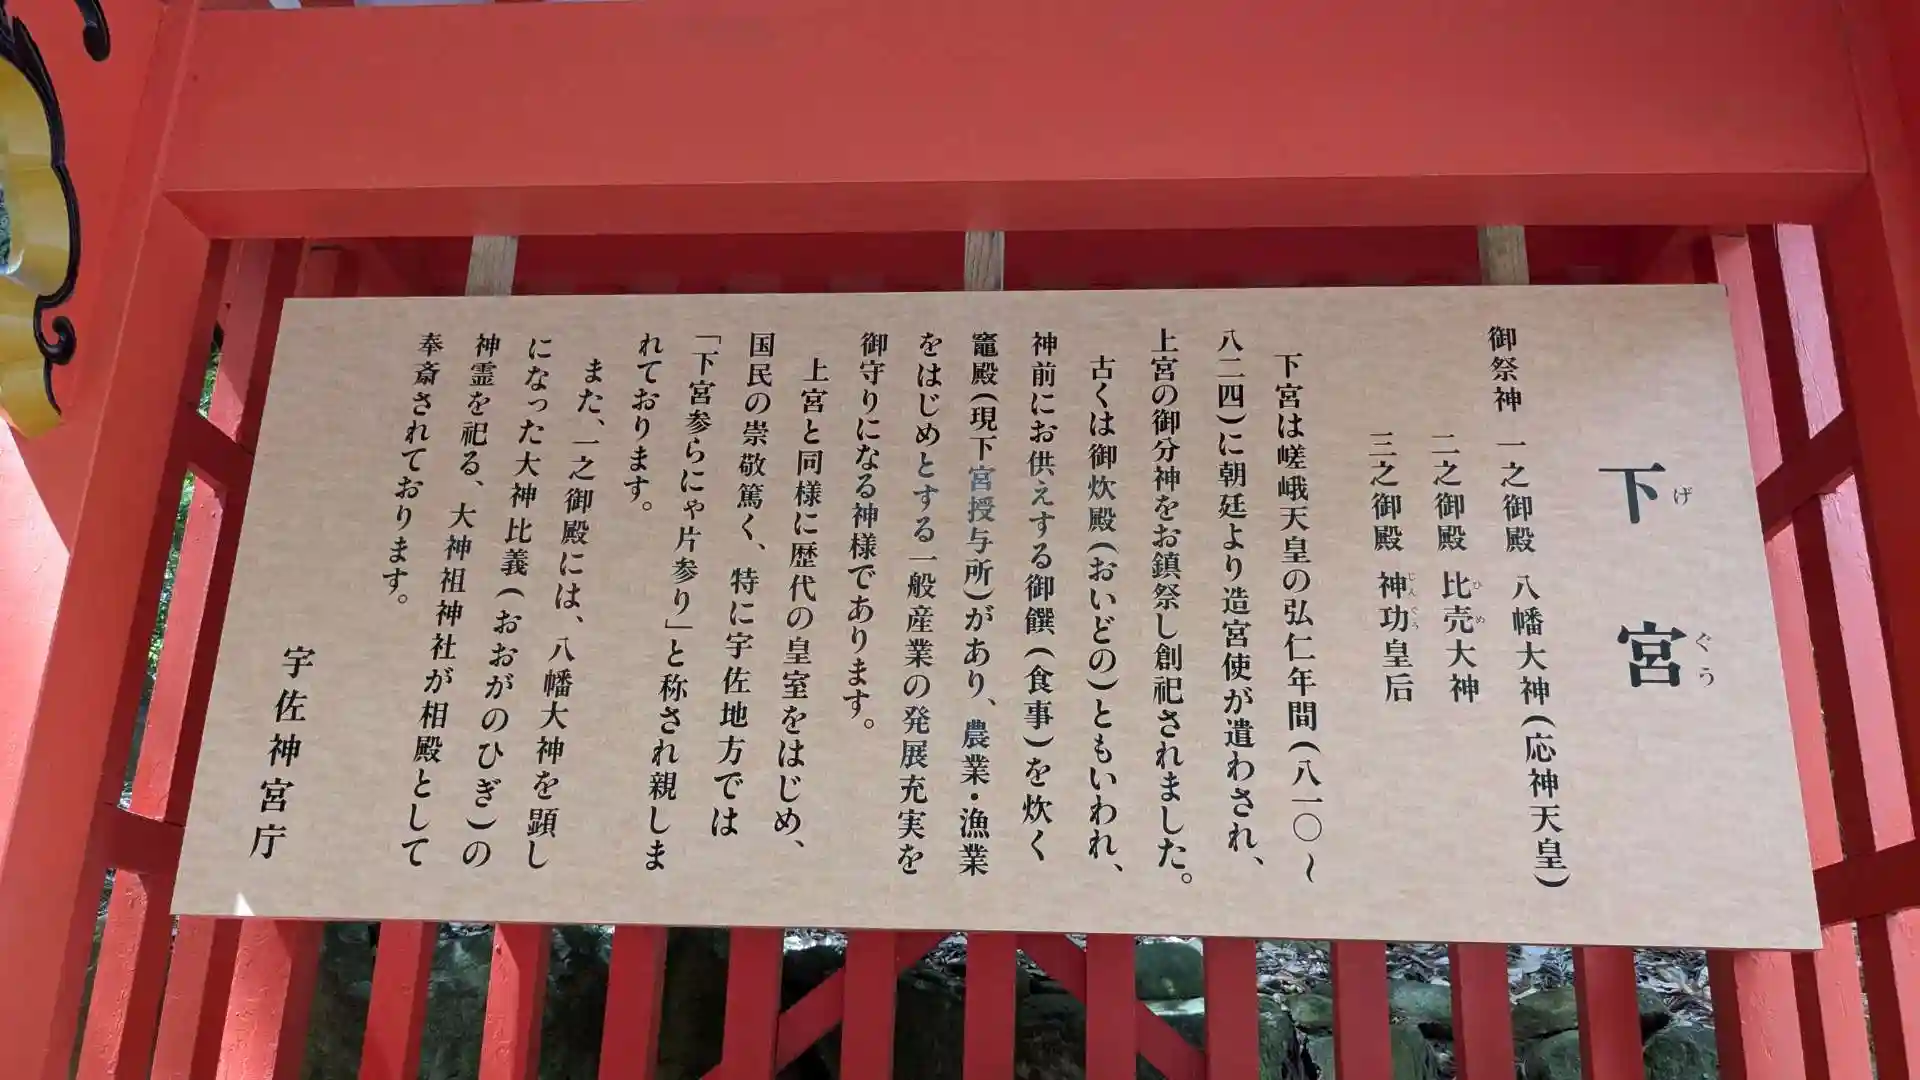 下宮
げぐう
御祭神 一之御殿 八幡大神(応神天皇)
二之御殿 比売大神
ひめ
三之御殿 神功皇后
じんぐう
下宮は嵯峨天皇の弘仁年間(八一〇~
八二四)に朝廷より造宮使が遣わされ、
上宮の御分神をお鎮祭し創祀されました。
古くは御炊殿(おいどの)ともいわれ、
神前にお供えする御饌(食事)を炊く
竈殿(現下宮授与所)があり、農業・漁業
をはじめとする一般産業の発展充実を
御守りになる神様であります。
上宮と同様に歴代の皇室をはじめ、
国民の崇敬篤く、特に宇佐地方では
「下宮参らにゃ片参り」と称され親しま
れております。
また、一之御殿には、八幡大神を顕し
になった大神比義(おおがのひぎ)の
神霊を祀る、大神祖神社が相殿として
奉斎されております。
宇佐神宮庁